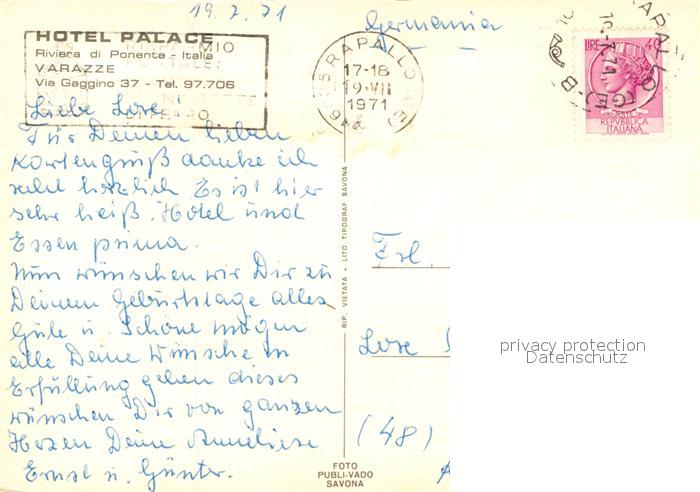 19.7.71
Germania
HOTEL PALACE
Riviera di Ponente - Italia
VARAZZE
Via Gaggino 37 - Tel. 97.706
RAPALLO (GE)
17-18
19·VII
1971
LIRE 40
REPVBBLICA
ITALIANA
Liebe Lore!
Für Deinen lieben
Kartengruß danke ich
recht herzlich Es ist hier
sehr heiß. Hotel und
Essen prima.
Nun wünschen wir Dir zu
Deinem Geburtstage alles
Gute u. Schöne mögen
alle Deine Wünsche in
Erfüllung gehen dieses
wünschen Dir von ganzen
Herzen Deine Anneliese
Ernst u. Günter.
RIP. VIETATA - LITO TIPOGRAF SAVONA
FOTO
PUBLI-VADO
SAVONA
Frl.
Lore
(48)
privacy protection
Datenschutz